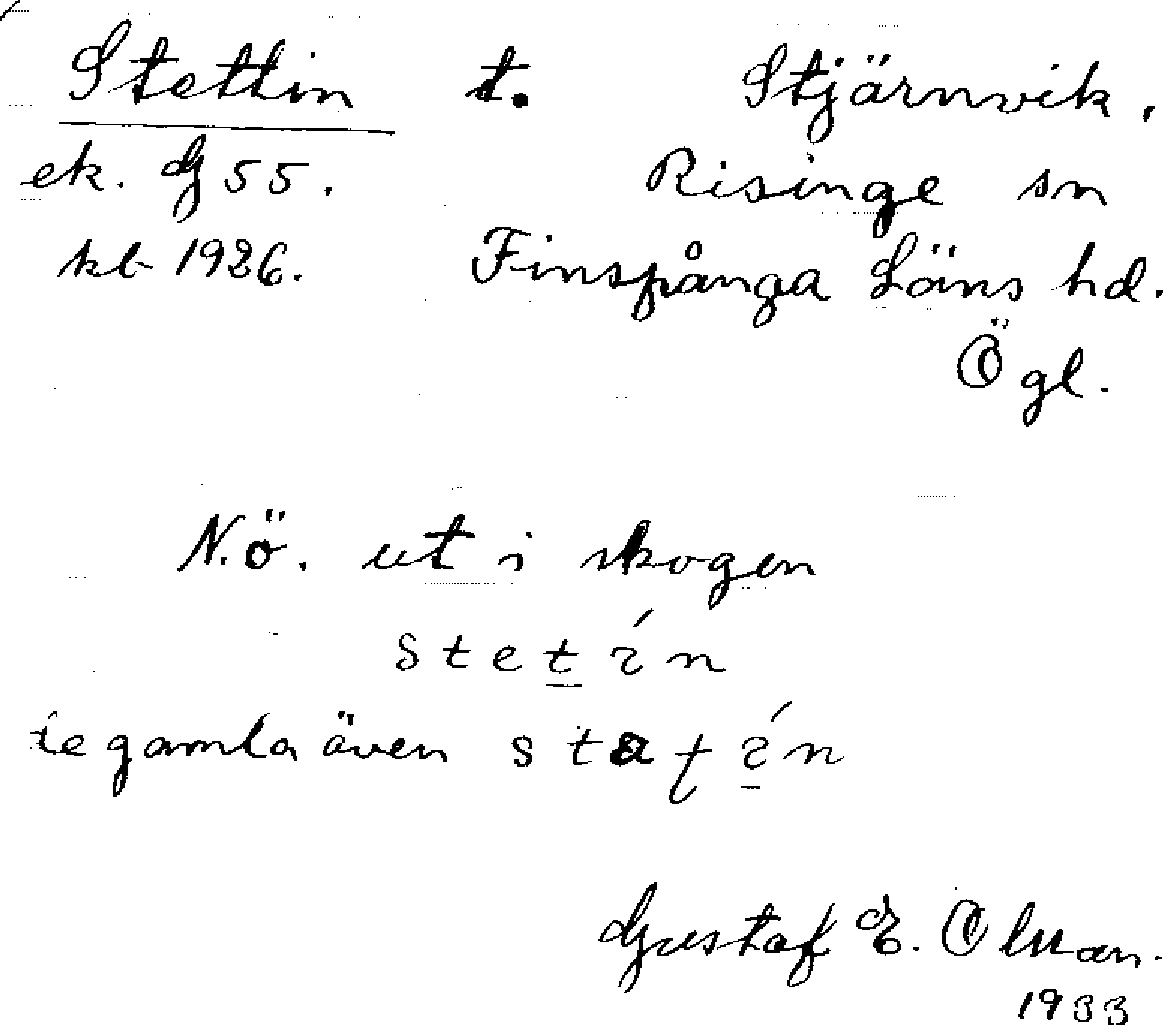 Stettin t. Stjärnvik,
ek. G 55. Risinge sn
kb 1926. Finspånga Läns hd.
Ögl.
N.Ö. ut i skogen
stetín
de gamla även statín
Gustaf E. Olman.
1933